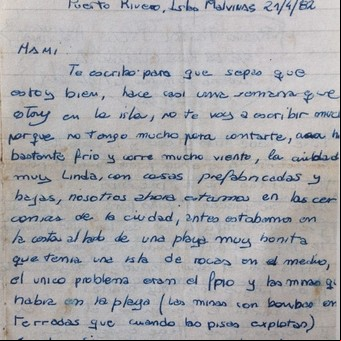 Puerto Rivero, Islas Malvinas 21/4/82
MAMI
Te escribo para que sepas que
estoy bien, hace casi una semana que
estoy en la isla, no te voy a escribir muc
porque no tengo mucho para contarte, acá h
bastante frio y corre mucho viento, la ciudad
muy linda, con casas prefabricadas y
bajas, nosotros ahora estamos en las cer
canias de la ciudad, antes estabamos en
la costa al lado de una playa muy bonita
que tenia una isla de rocas en el medio,
el unico problema eran el frio y las minas q
habia en la playa (las minas son bombas en
terradas que cuando las pisas explotan)